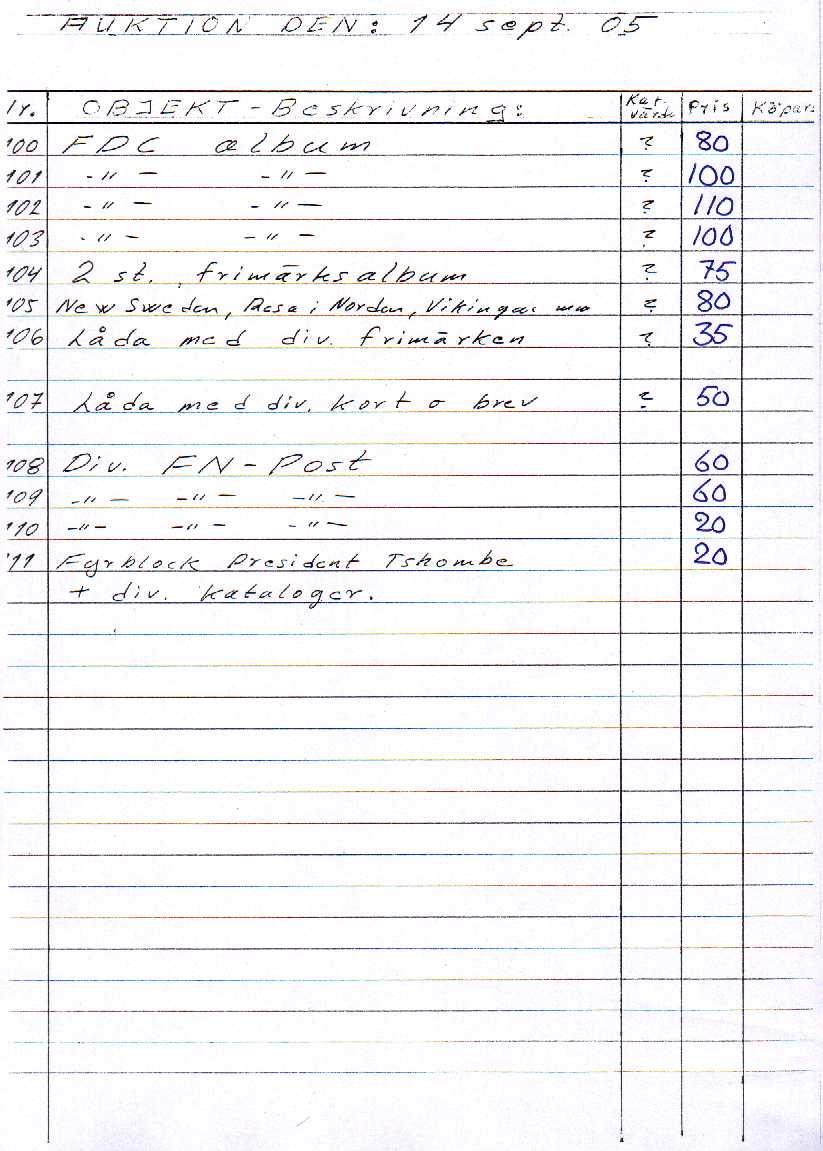 AUKTION DEN: 14 sept. 05
Nr. OBJEKT-Beskrivning: Kat. värde Pris Köpare
100 FDC album ? 80
101 -"- -"- ? 100
102 -"- -"- ? 110
103 -"- -"- ? 100
104 2 st. frimärksalbum ? 75
105 New Sweden, Resa i Norden, Vikingar mm ? 80
106 Låda med div. frimärken ? 35
107 Låda med div. kort o brev ? 50
108 Div. FN-Post 60
109 -"- -"- -"- 60
110 -"- -"- -"- 20
111 Fyrblock President Tshombe 20
+ div. kataloger.